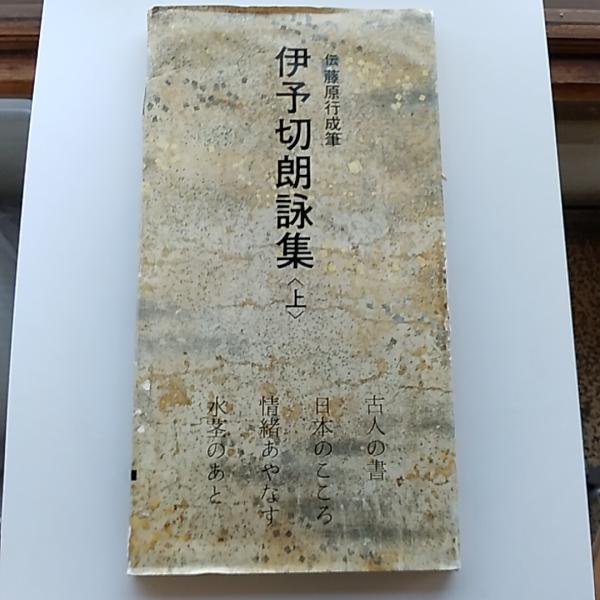 伝 藤原行成筆
伊予切朗詠集〈上〉
古人の書
日本のこころ
情緒あやなす
水茎のあと